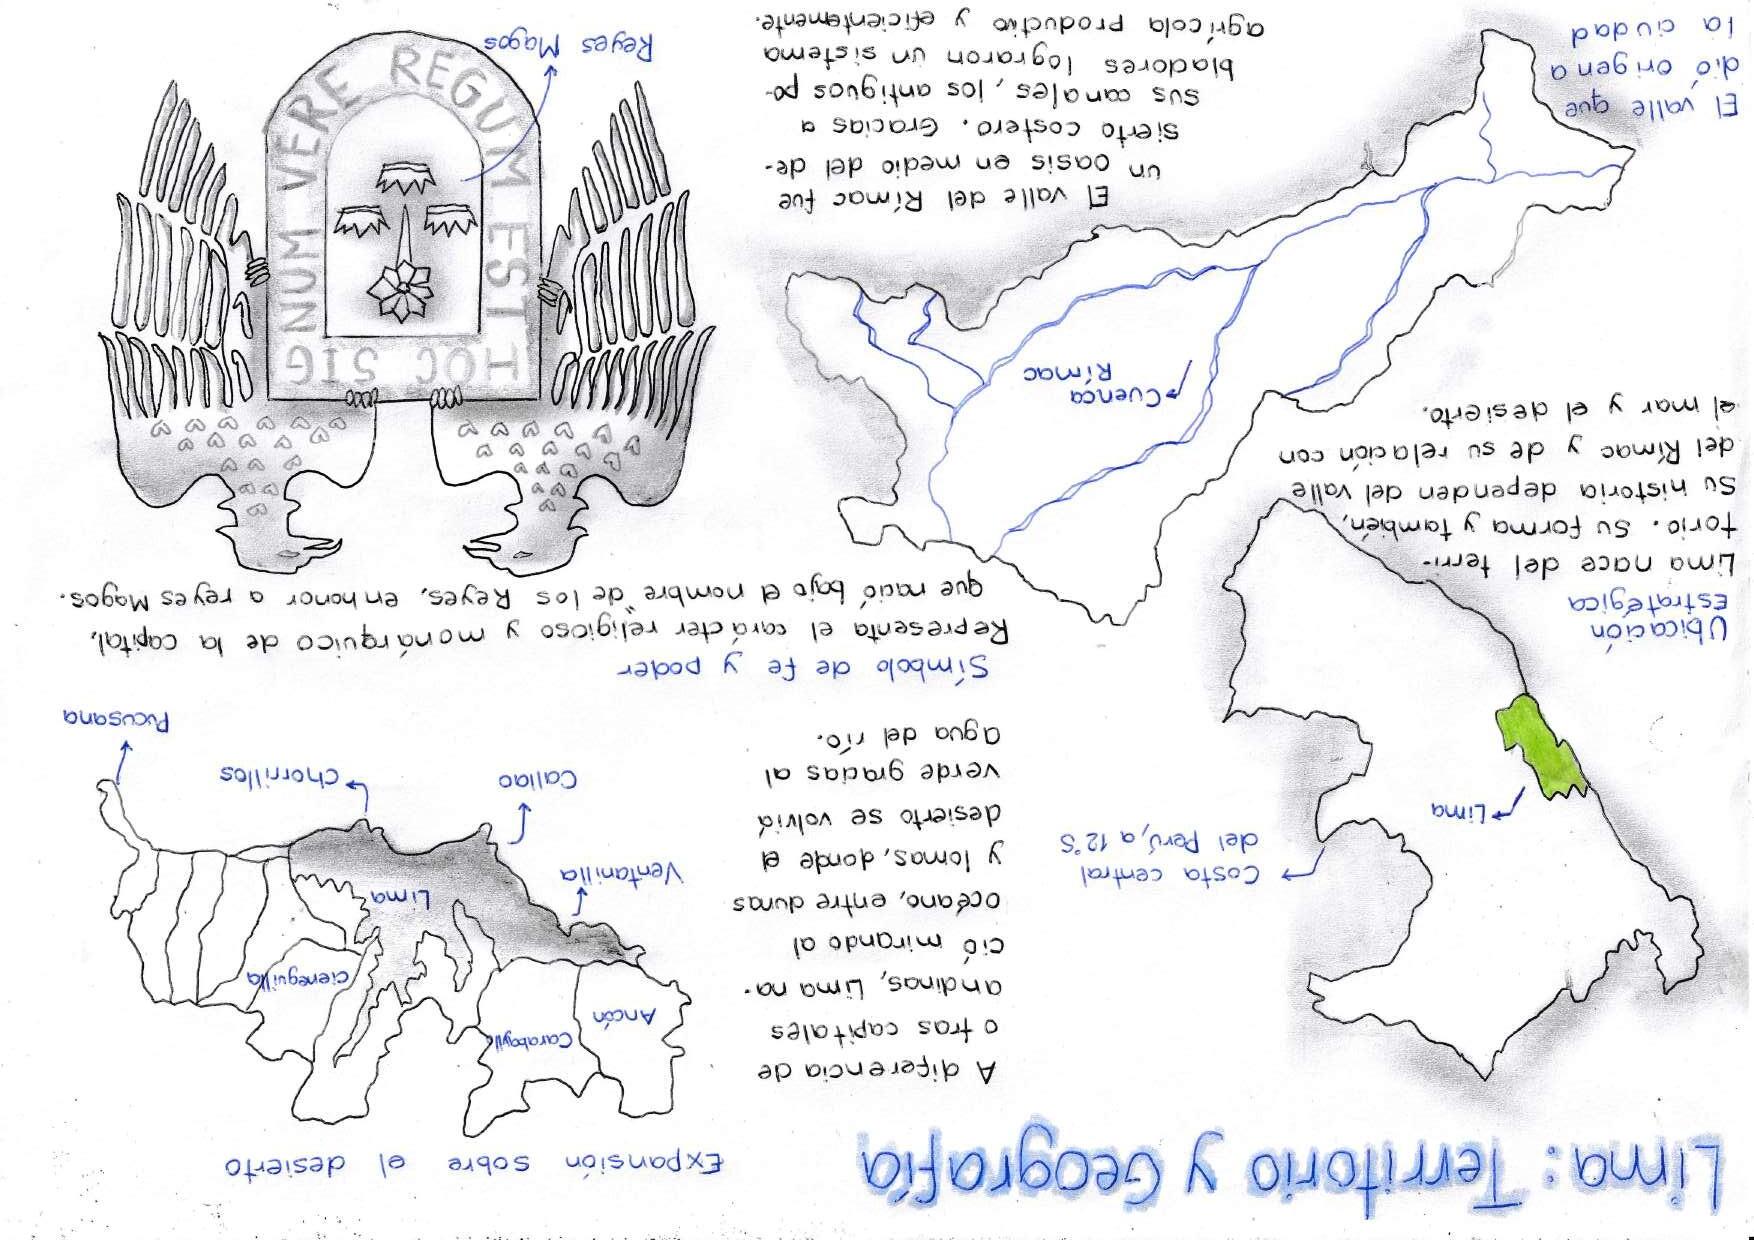 Lima: Territorio y Geografía
Lima
Costa central
del Perú, a 12°S
Ubicación
Estratégica
Lima nace del terri-
torio. Su forma y también,
Su historia dependen del valle
del Rímac y de su relación con
el mar y el desierto.
A diferencia de
otras capitales
andinas, Lima na-
ció mirando al
océano, entre dunas
y lomas, donde el
desierto se volvía
verde gracias al
agua del río.
Expansión sobre el desierto
Ancón
Carabayllo
Cieneguilla
Lima
Ventanilla
Callao
Chorrillos
Pucusana
Cuenca
Rímac
El valle que
dió origen a
la ciudad
El valle del Rímac fue
un oasis en medio del de-
sierto costero. Gracias a
sus canales, los antiguos po-
bladores lograron un sistema
agrícola productivo y eficientemente.
Símbolo de fe y poder
Representa el carácter religioso y monárquico de la capital,
que nació bajo el nombre de los Reyes, en honor a reyes Magos.
HOC SIG
NUM VERE REGUM EST
Reyes Magos